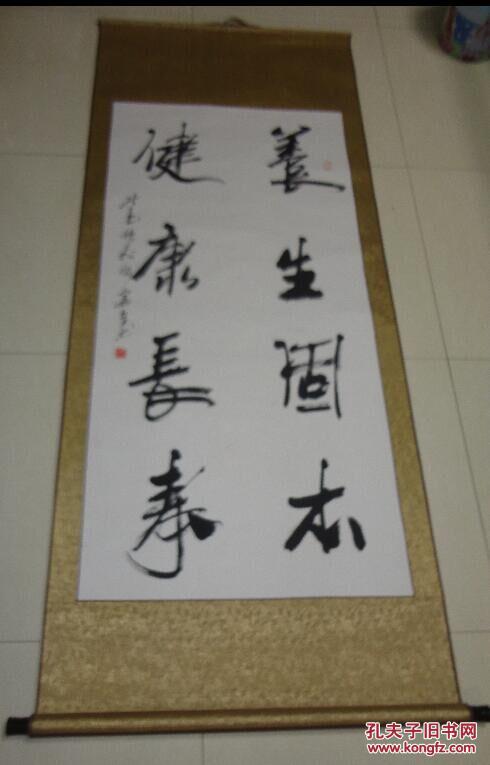 養生固本
健康長寿
孔夫子旧书网
www.kongfz.com